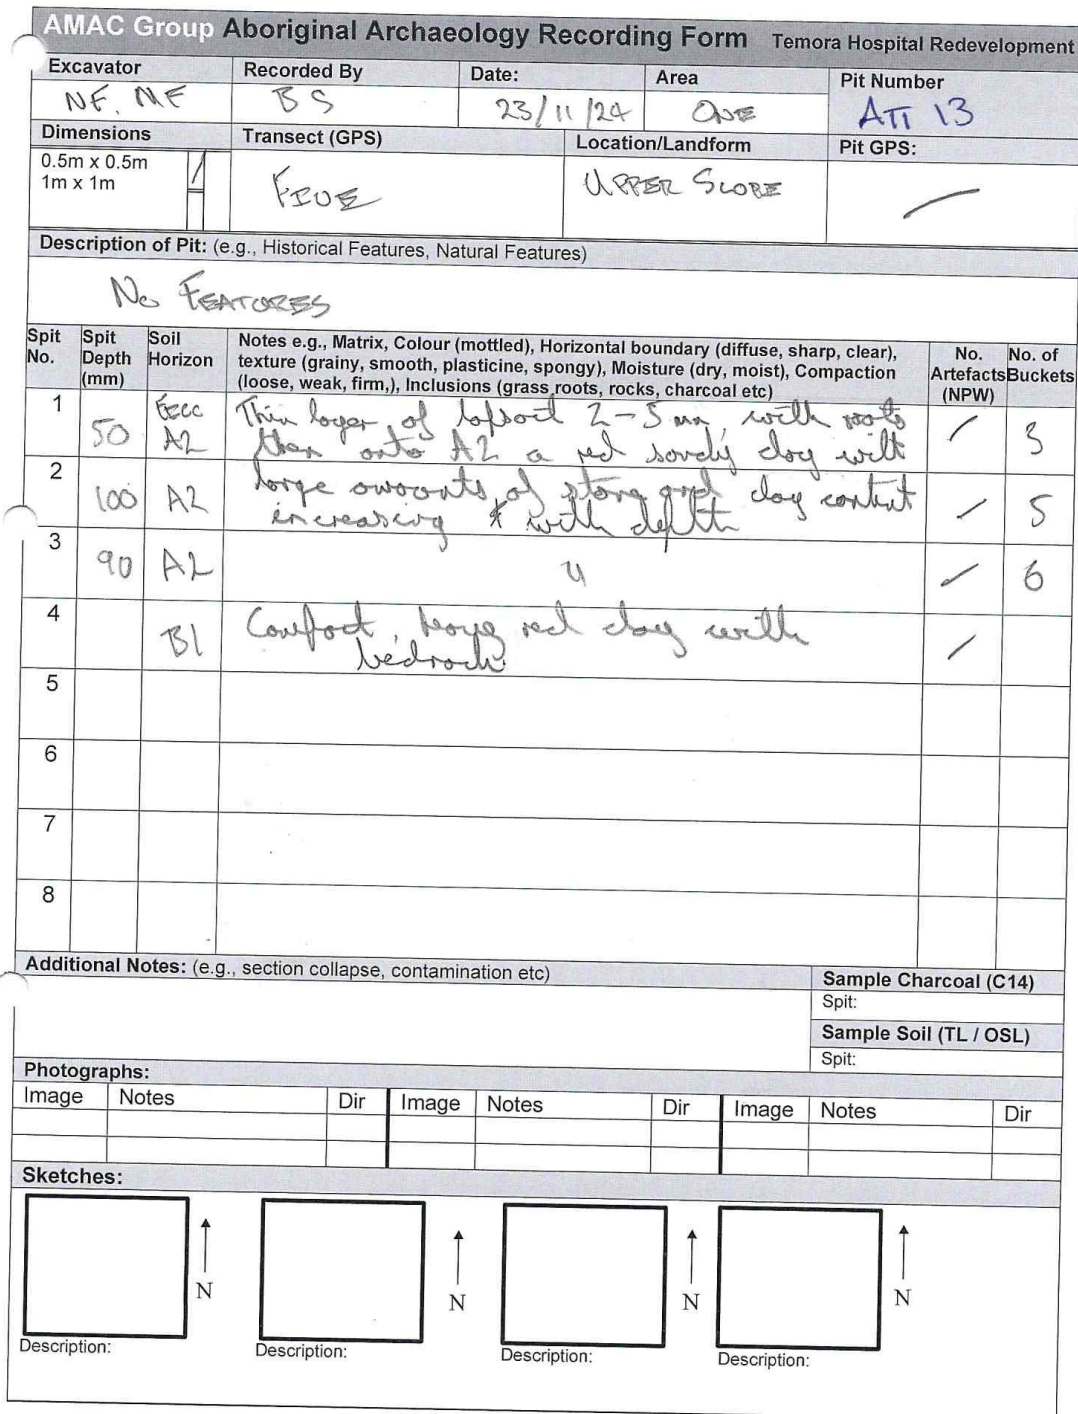 AMAC Group Aboriginal Archaeology Recording Form Temora Hospital Redevelopment
Excavator Recorded By Date: Area Pit Number
NF. MF BS 23/11/24 ONE ATT 13
Dimensions Transect (GPS) Location/Landform Pit GPS:
0.5m x 0.5m
1m x 1m
FIVE UPPER SLOPE
Description of Pit: (e.g., Historical Features, Natural Features)
NO FEATURES
Spit No. Spit Depth (mm) Soil Horizon Notes e.g., Matrix, Colour (mottled), Horizontal boundary (diffuse, sharp, clear),
texture (grainy, smooth, plasticine, spongy), Moisture (dry, moist), Compaction
(loose, weak, firm,), Inclusions (grass roots, rocks, charcoal etc)
No. Artefacts (NPW) No. of Buckets
1 50 A2 Thin layer of topsoil 2-5 mm, with roots
then onto A2 a red sandy clay with 3
2 100 A2 large amounts of stone and clay content
increasing with depth 5
3 90 A2 " 6
4 B1 Compact, red clay with
bedrock.
5
6
7
8
Additional Notes: (e.g., section collapse, contamination etc)
Sample Charcoal (C14)
Spit:
Sample Soil (TL / OSL)
Spit:
Photographs:
Image Notes Dir Image Notes Dir Image Notes Dir
Sketches:
N N N N
Description: Description: Description: Description: